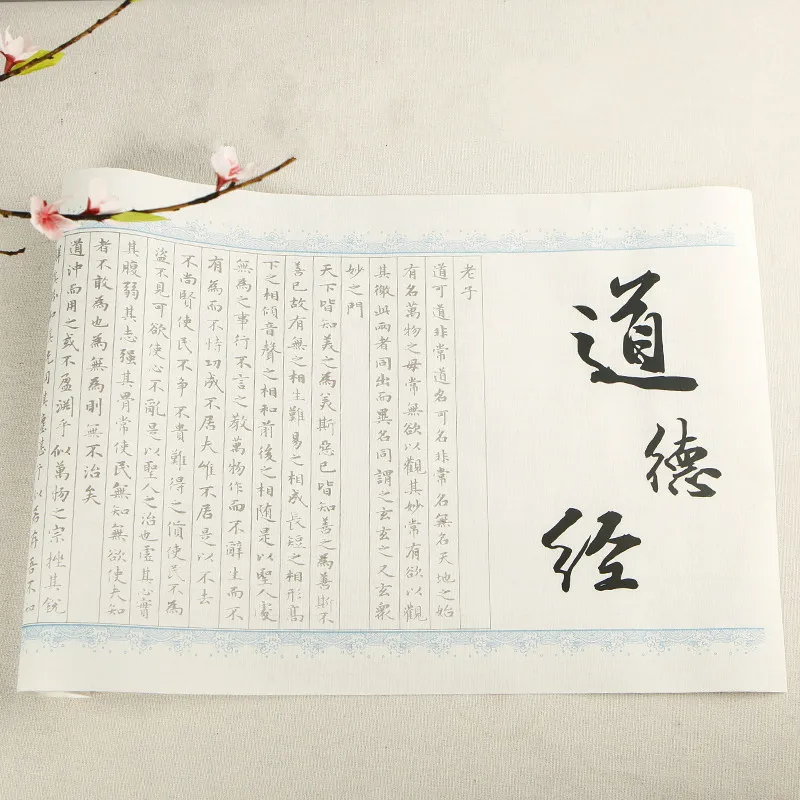 道德经
老子
道可道非常道名可名非常名無名天地之始
有名萬物之母常無欲以觀其妙常有欲以觀
其徼此兩者同出而異名同謂之玄玄之又玄眾
妙之門
天下皆知美之為美斯惡已皆知善之為善斯不
善已故有無之相生難易之相成長短之相形高
下之相傾音聲之相和前後之相随是以聖人處
無為之事行不言之教萬物作而不辭生而不
有為而不恃功成不居夫唯不居是以不去
不尚賢使民不争不貴難得之貨使民不為
盜不見可欲使心不亂是以聖人之治也虛其心實
其腹弱其志强其骨常使民無知無欲使夫知
者不敢為也為無為則無不治矣
道沖而用之或不盈淵乎似萬物之宗挫其銳